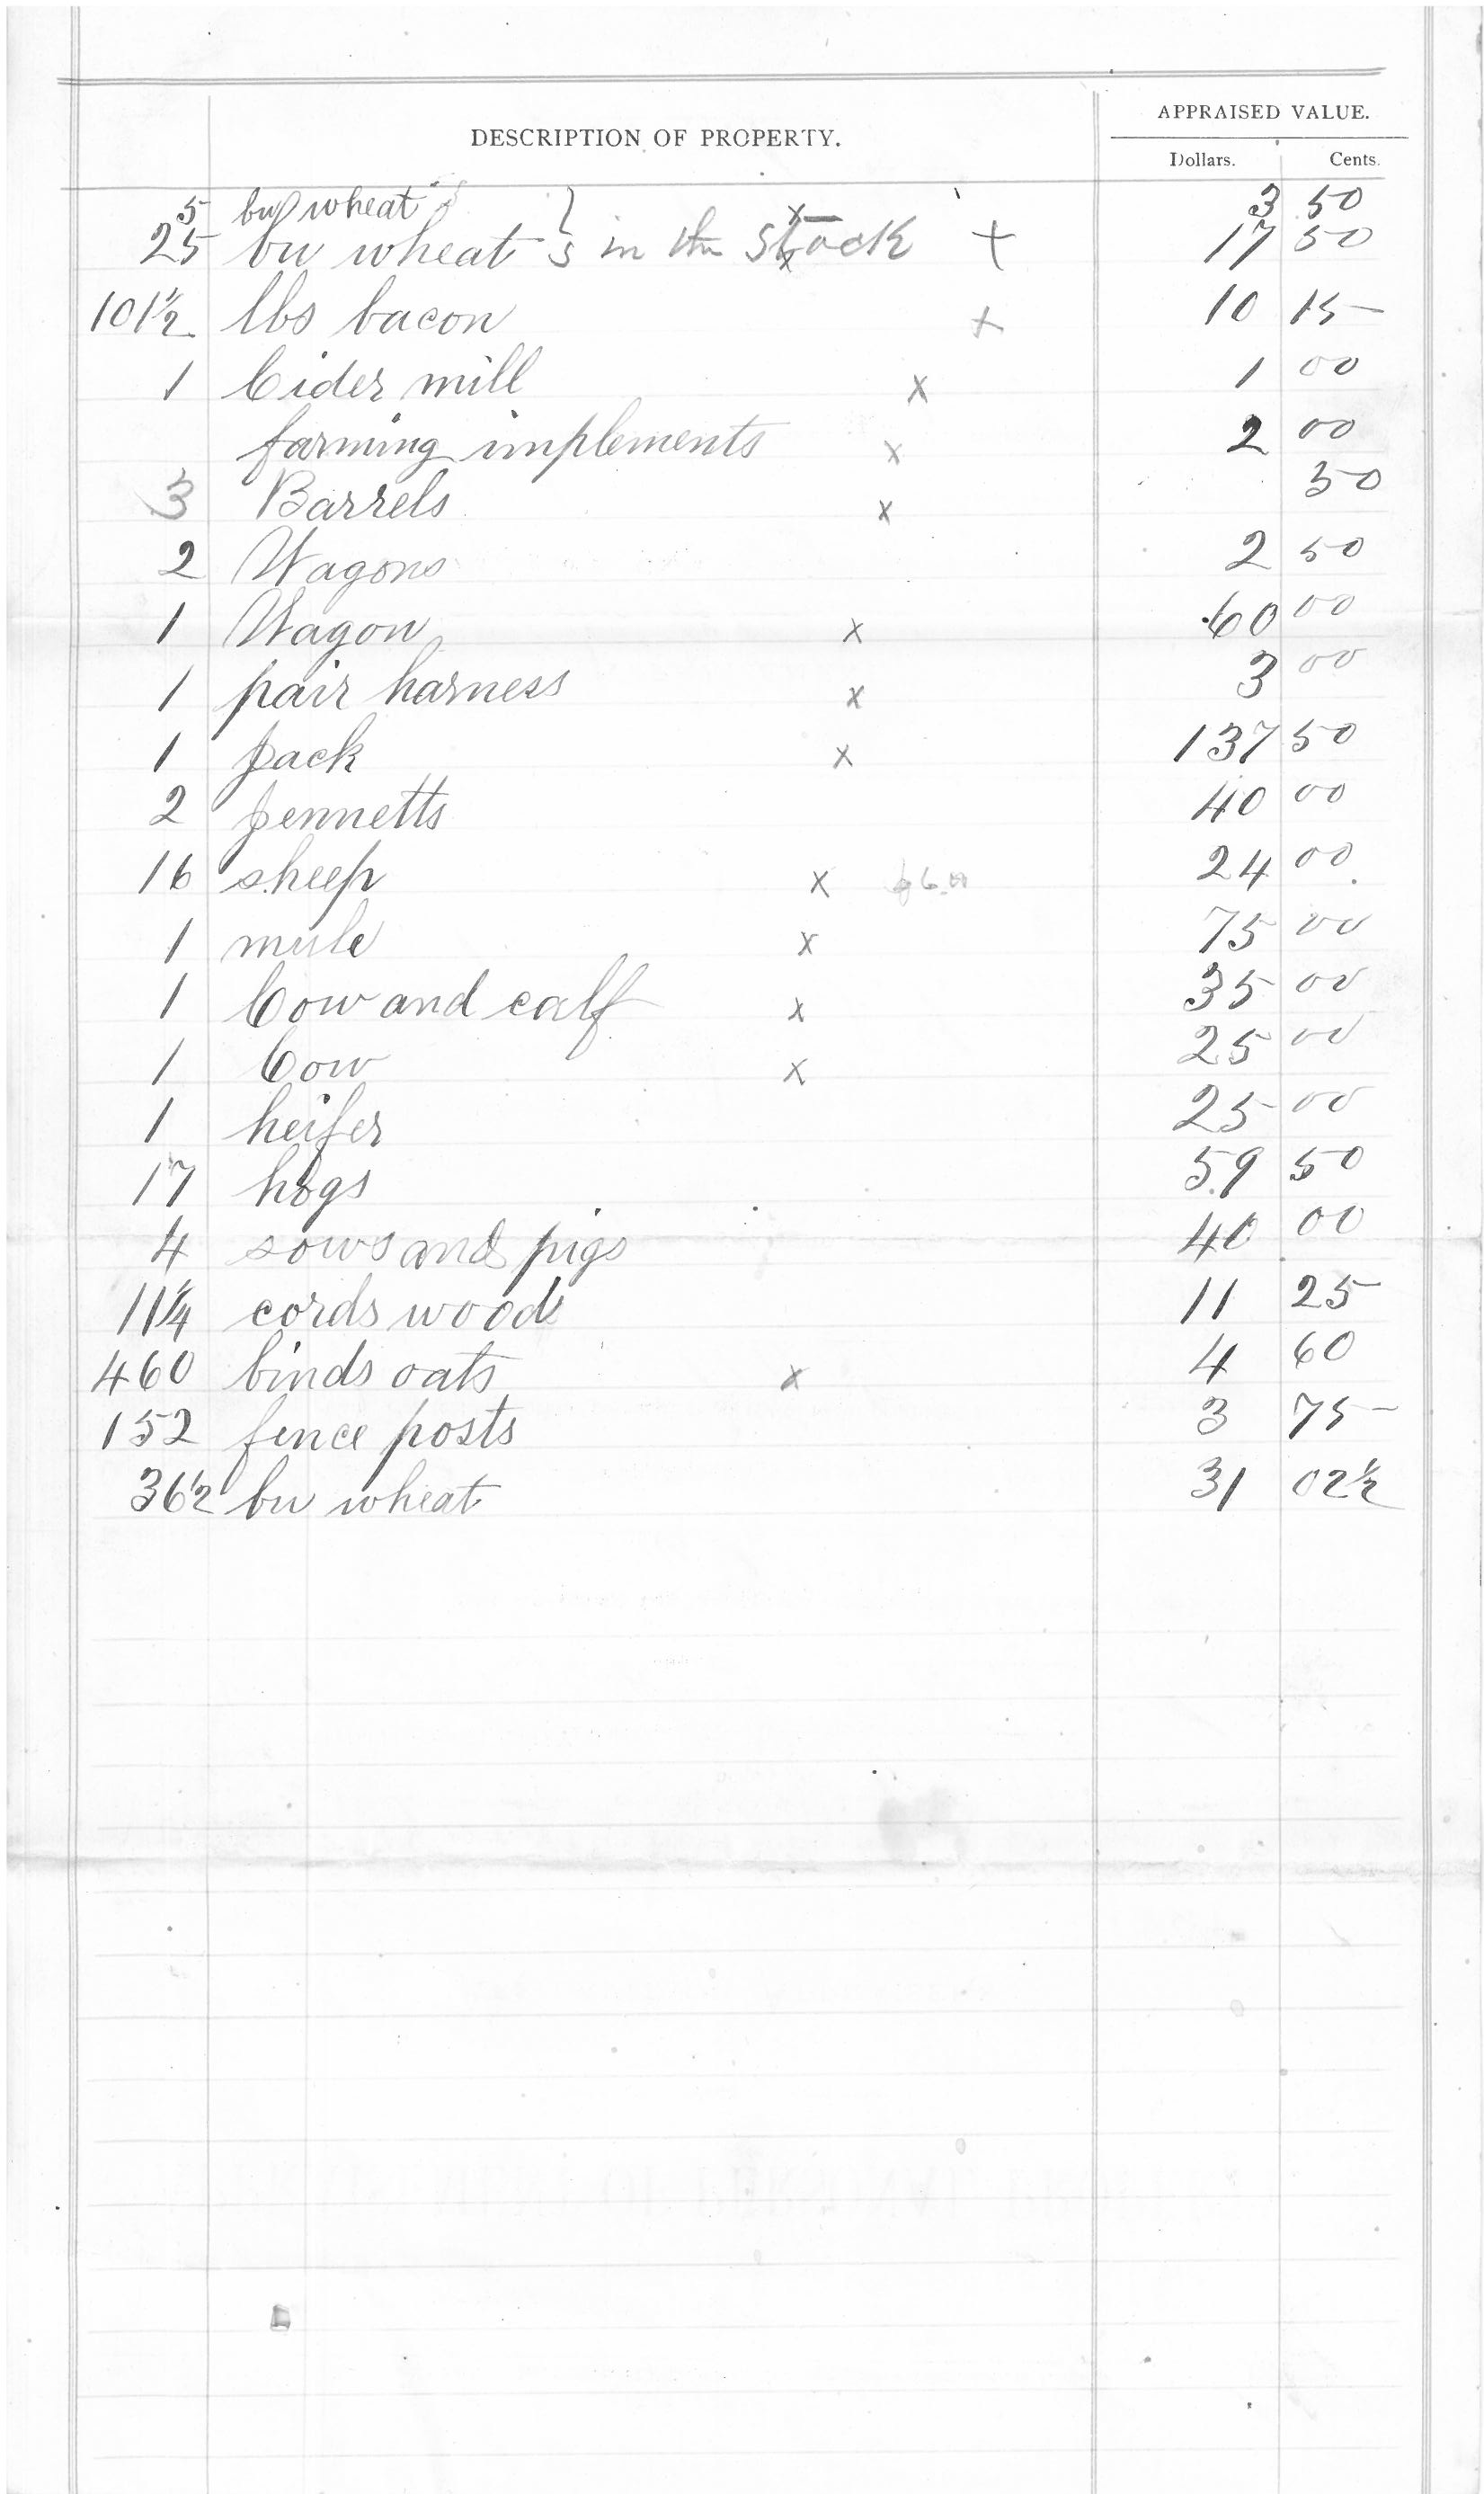 DESCRIPTION OF PROPERTY. APPRAISED VALUE.
Dollars. Cents.
5 bu wheat } 3 50
25 bu wheat } in the Stack + 17 50
101 1/2 lbs bacon + 10 15
1 Cider mill x 1 00
farming implements x 2 00
3 Barrels x 50
2 Wagons 2 50
1 Wagon x 60 00
1 pair harness x 3 00
1 Jack x 137 50
2 Jennetts 40 00
16 sheep x 24 00
1 mule x 75 00
1 Cow and calf x 35 00
1 Cow x 25 00
1 heifer 25 00
17 hogs 59 50
4 sows and pigs 40 00
11 1/4 cords wood 11 25
460 binds oats x 4 60
152 fence posts 3 75
36 1/2 bu wheat 31 02 1/2